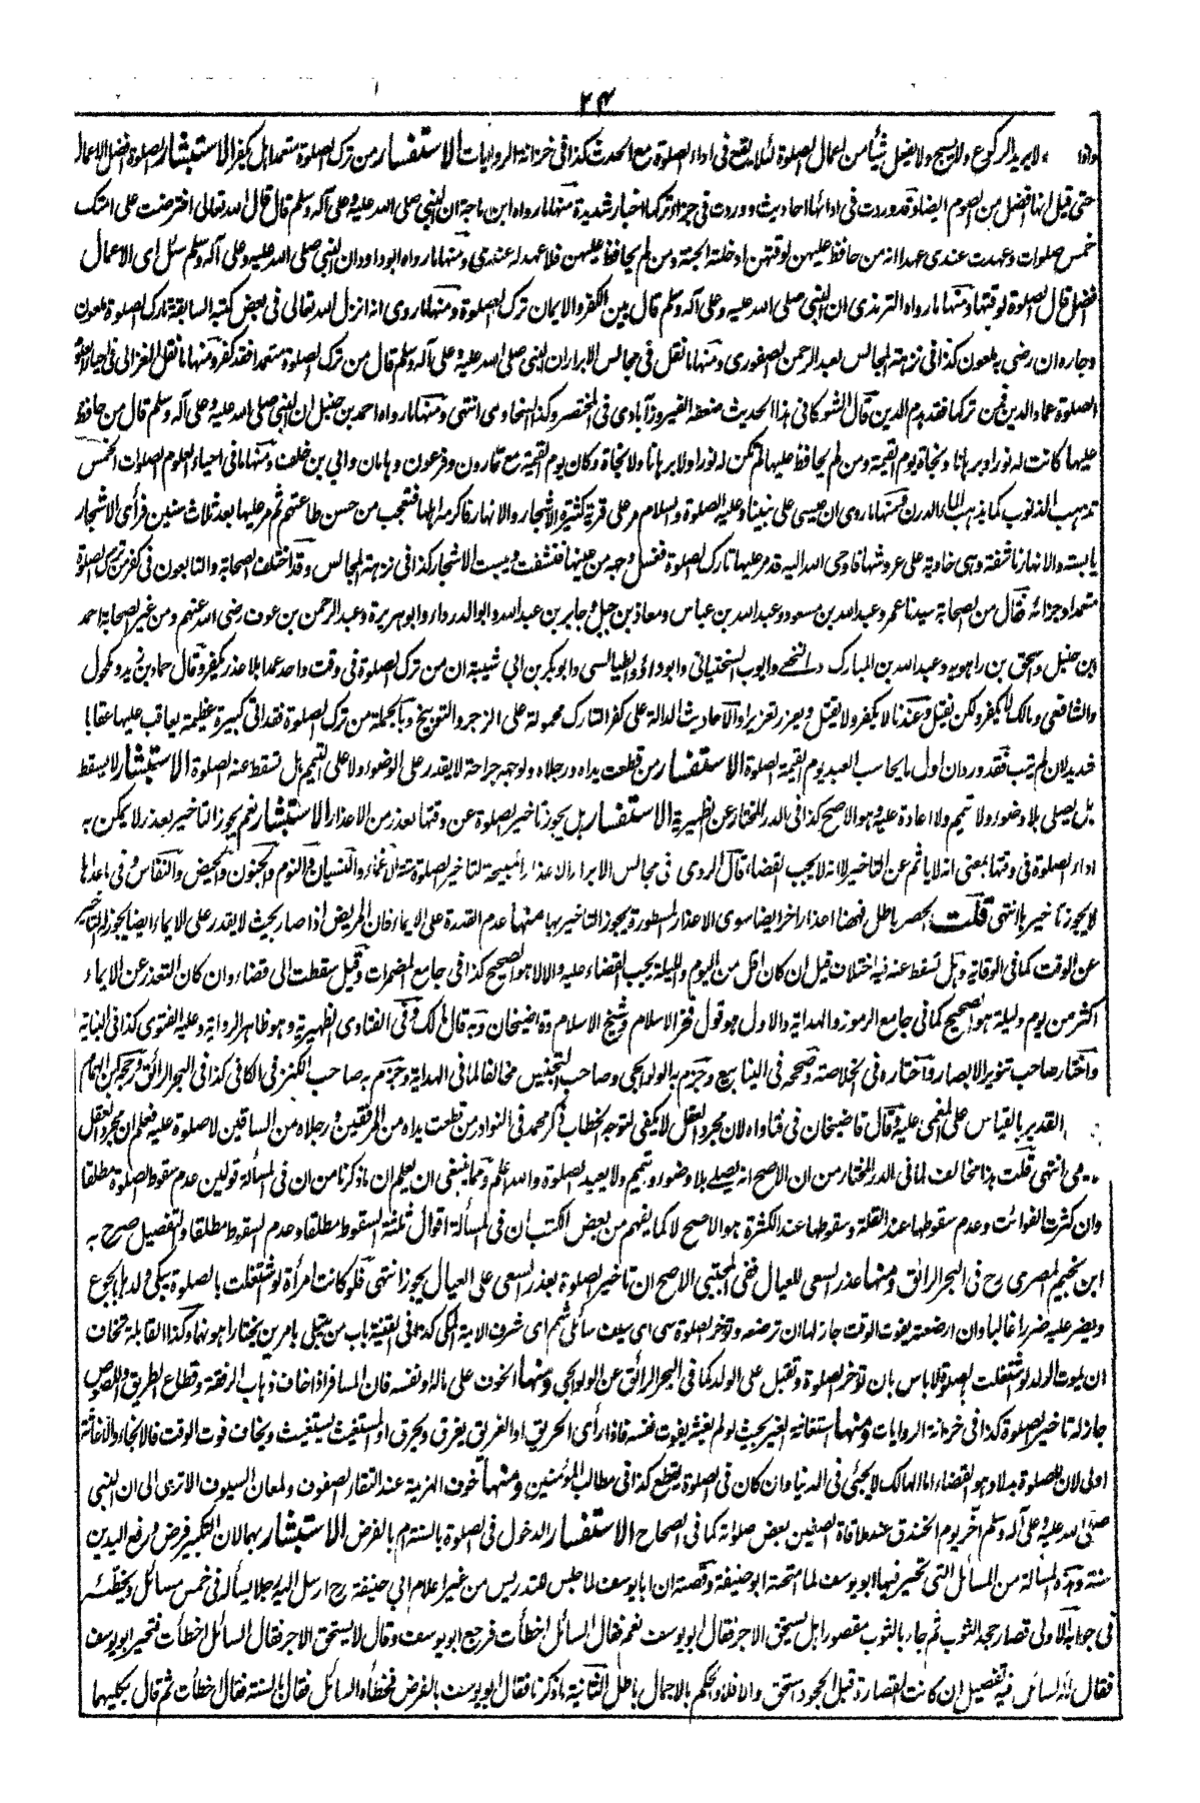 ٢٤
لا يريد الركوع ولا يسبح ولا يفعل شيأ من اعمال الصلوة لئلا يقع فى اداء الصلوة مع الحدث كذا فى خزانة الروايات الاستفسار من ترك الصلوة متعمدا هل يكفر الاستبشار الصلوة افضل الاعمال
حتى قيل انها افضل من الصوم ايضا وقد وردت فى ادائها احاديث ووردت فى جزاء تركها اخبار شديدة منها ما رواه ابن ماجة ان النبى صلى الله عليه وعلى آله وسلم قال قال الله تعالى افترضت على امتك
خمس صلوات وعهدت عندى عهدا انه من حافظ عليهن لوقتهن ادخلته الجنة ومن لم يحافظ عليهن فلا عهد له عندى ومنها ما رواه ابو داود ان النبى صلى الله عليه وعلى آله وسلم سئل اى الاعمال
افضل قال الصلوة لوقتها ومنها ما رواه الترمذى ان النبى صلى الله عليه وعلى آله وسلم قال بين الكفر والايمان ترك الصلوة ومنها ما روى انه انزل الله تعالى فى بعض كتبه السابقة تارك الصلوة ملعون
وجاره ان رضى به ملعون كذا فى نزهة المجالس لعبد الرحمن الصفورى ومنها ما نقل فى مجالس الابرار ان النبى صلى الله عليه وعلى آله وسلم قال من ترك الصلوة متعمدا فقد كفر ومنها ما نقل الغزالى فى احياء العلوم
الصلوة عماد الدين فمن تركها فقد هدم الدين قال الشوكانى هذا الحديث ضعفه الفيروزآبادى فى المختصر وكذا السخاوى انتهى ومنها ما رواه احمد بن حنبل ان النبى صلى الله عليه وعلى آله وسلم قال من حافظ
عليها كانت له نورا وبرهانا ونجاة يوم القيمة ومن لم يحافظ عليها لم تكن له نورا ولا برهانا ولا نجاة وكان يوم القيمة مع قارون وفرعون وهامان وابي بن خلف ومنها ما فى احياء العلوم الصلوات الخمس
تذهب الذنوب كما يذهب الماء الدرن ومنها ما روى ان عيسى على نبينا وعليه الصلوة والسلام مر على قرية كثيرة الاشجار والانهار فاكرمه اهلها فتعجب من حسن طاعتهم ثم مر عليها بعد ثلاث سنين فرأى الاشجار
يابسة والانهار ناشفة وهى خاوية على عروشها فاوحى الله اليه قد مر عليها تارك الصلوة فغسل وجهه من عينها فنشفت ويبست الاشجار كذا فى نزهة المجالس وقد اختلف الصحابة والتابعون فى كفر من ترك الصلوة
متعمدا وجزائه فقال من الصحابة سيدنا عمر وعبد الله بن مسعود وعبد الله بن عباس ومعاذ بن جبل وجابر بن عبد الله وابو الدرداء وابو هريرة وعبد الرحمن بن عوف رضى الله عنهم ومن غير الصحابة احمد
ابن حنبل واسحق بن راهويه وعبد الله بن المبارك والنخعى وايوب السختيانى وابو داؤد الطيالسى وابو بكر بن ابي شيبة ان من ترك الصلوة فى وقت واحد عمدا بلا عذر يكفر وقال حماد بن زيد ومكحول
والشافعى ومالك لا يكفر ولكن يقتل وعندنا لا يكفر ولا يقتل ويعزر تعزيرا والاحاديث الدالة على كفر التارك محمولة على الزجر والتوبيخ وبالجملة من ترك الصلوة فقد اتى كبيرة عظيمة يعاقب عليها عقابا
شديدا ان لم يتب فقد ورد ان اول ما يحاسب العبد يوم القيمة الصلوة الاستفسار من قطعت يداه ورجلاه ولوجهه جراحة لا يقدر على الوضوء ولا على التيمم هل تسقط عنه الصلوة الاستبشار لا يسقط
بل يصلى بلا وضوء ولا تيمم ولا اعادة عليه وهو الاصح كذا فى الدر المختار عن الظهيرية الاستفسار هل يجوز تاخير الصلوة عن وقتها بعذر من الاعذار الاستبشار نعم يجوز التاخير بعذر لا يمكن به
اداء الصلوة فى وقتها بمعنى انه لا ياثم عن التاخير لا انه لا يجب القضاء قال الرومى فى مجالس الابرار الاعذار المبيحة لتاخير الصلوة ستة الاغماء والنسيان والنوم والجنون والحيض والنفاس وفى ما عداها
لا يجوز تاخيرها انتهى قلت الحصر باطل فههنا اعذار اخر ايضا سوى الاعذار المسطورة يجوز التاخير بها منها عدم القدرة على الايماء فان المريض اذا صار بحيث لا يقدر على الايماء ايضا يجوز له التاخير
عن الوقت كما فى الوقاية وهل تسقط عنه فيه اختلاف قيل ان كان اقل من اليوم والليلة يجب القضاء عليه والا لا هو الصحيح كذا فى جامع المضمرات وقيل سقطت الى قضاء وان كان التعذر عن الايماء
اكثر من يوم وليلة هو الصحيح كما فى جامع الرموز والهداية والاول هو قول فخر الاسلام وشيخ الاسلام وقاضيخان وبه قال مالك وفى الفتاوى الظهيرية وهو ظاهر الرواية وعليه الفتوى كذا فى النهاية
واختاره صاحب تنوير الابصار واختاره فى الخلاصة وصححه فى الينابيع وجزم به الولوالجى وصاحب التجنيس مخالفا لما فى الهداية وجزم به صاحب الكنز فى الكافى كذا فى البحر الرائق ورجحه ابن الهمام
القدير بالقياس على المغمى عليه وقال قاضيخان فى فتاواه لان مجرد العقل لا يكفى لتوجه الخطاب ذكر محمد فى النوادر من قطعت يداه من المرفقين ورجلاه من الساقين لا صلوة عليه فعلم ان مجرد العقل
انتهى قلت هذا مخالف لما فى الدر المختار من ان الاصح انه يصلى بلا وضوء وتيمم ولا يعيد الصلوة والله اعلم ومما ينبغى ان يعلم ان ما ذكرنا من ان فى المسألة قولين عدم سقوط الصلوة مطلقا
وان كثرت الفوائت وعدم سقوطها عند القلة وسقوطها عند الكثرة هو الاصح لا كما يفهم من بعض الكتب ان فى المسألة اقوال ثلثة السقوط مطلقا وعدم السقوط مطلقا والتفصيل صرح به
ابن نجيم المصرى رح فى البحر الرائق ومنها عذر السعى للعيال ففى المجتبى الاصح ان تاخير الصلوة بعذر السعى على العيال يجوز انتهى فلو كانت امرأة لو اشتغلت بالصلوة يبكى ولدها بالجوع
ويضر عليه ضررا غالبا وان ارضعته يفوت الوقت جاز لها ان ترضعه وتؤخر الصلوة سى اى سيف سائلى شم اى شرف الائمة المكى كذا فى القنية باب من يبتلى بامرين يختار اهونهما وكذا القابلة تخاف
ان يموت الولد لو اشتغلت بالصلوة لا باس بان تؤخر الصلوة وتقبل على الولد كما فى البحر الرائق عن الولوالجى ومنها الخوف على ماله او نفسه فان المسافر اذا خاف ذهاب الرفقة وقطاع الطريق واللصوص
جاز له تاخير الصلوة كذا فى خزانة الروايات ومنها استغاثة الغير بحيث لو لم يغثه يفوت نفسه فاذا رأى الحريق او الغريق يغرق ويحرق او المستغيث يستغيث ويخاف فوت الوقت فالانجاء والاغاثة
اولى لان للصلوة بدلا وهو القضاء اما الهالك لا يجئى فى الدنيا وان كان فى الصلوة يقطع كذا فى مطالب المؤمنين ومنها خوف الهزيمة عند التقاء الصفوف ولمعان السيوف الا ترى الى ان النبى
صلى الله عليه وعلى آله وسلم اخر يوم الخندق عند ملاقاة الصفين بعض صلواته كما فى الصحاح الاستفسار الدخول فى الصلوة بالسنة ام بالفرض الاستبشار بهما لان التكبير فرض ورفع اليدين
سنة وهذه المسألة من المسائل التى تحير فيها ابو يوسف لما امتحنه ابو حنيفة وقصته ان ابا يوسف لما جلس للتدريس من غير اعلام ابي حنيفة رح ارسل اليه رجلا يسأله فى خمس مسائل ويخطئه
فى جوابه الاولى قصار جحد الثوب ثم جاء بالثوب مقصورا هل يستحق الاجر فقال ابو يوسف نعم فقال السائل اخطأت فرجع ابو يوسف وقال لا يستحق الاجر فقال السائل اخطأت فتحير ابو يوسف
فقال له السائل فيه تفصيل ان كانت القصارة قبل الجحود استحق والا فلا والحكم بالاجمال باطل الثانية ما ذكرنا فقال ابو يوسف بالفرض فخطأه السائل فقال بالسنة فقال اخطأت ثم قال بكليهما